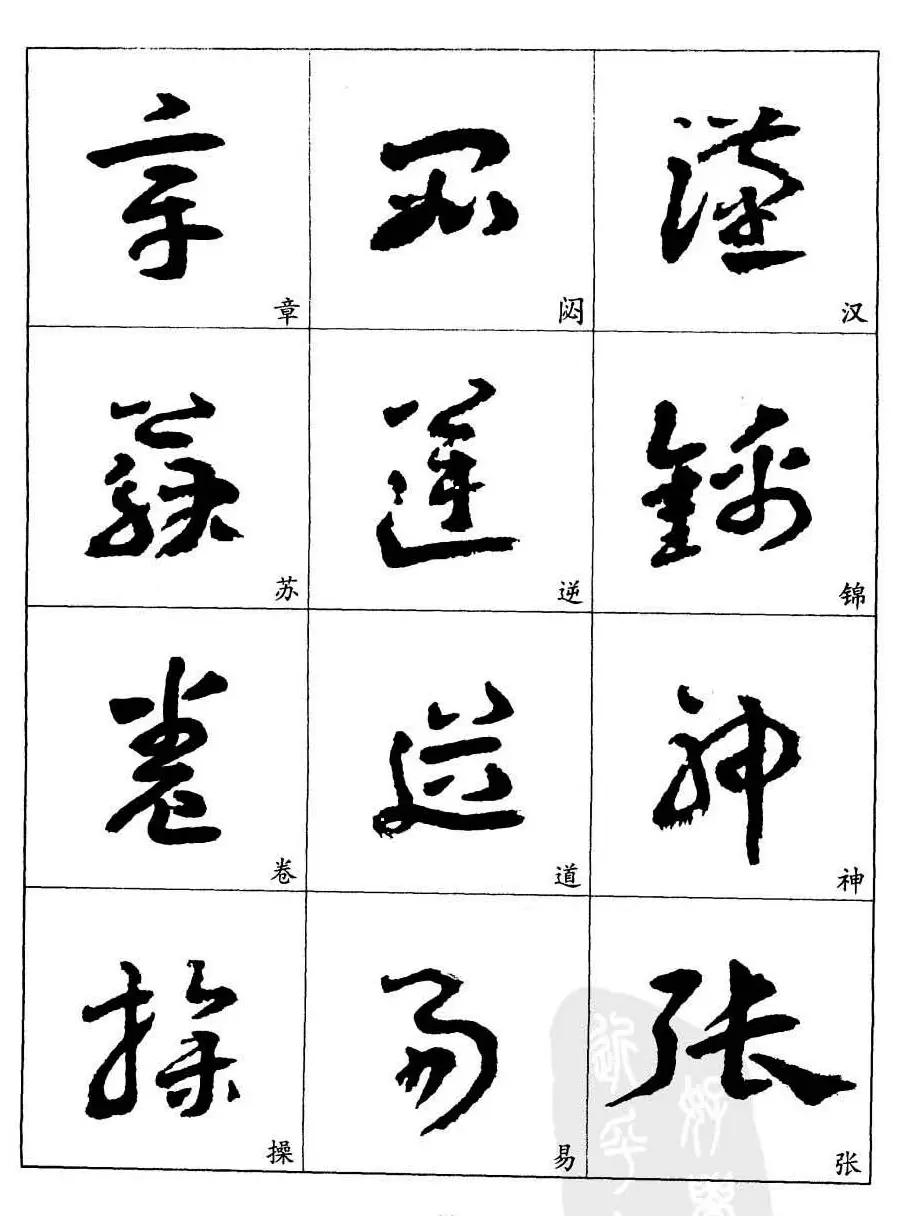 章 闷 汉
苏 逆 锦
卷 道 神
操 易 张